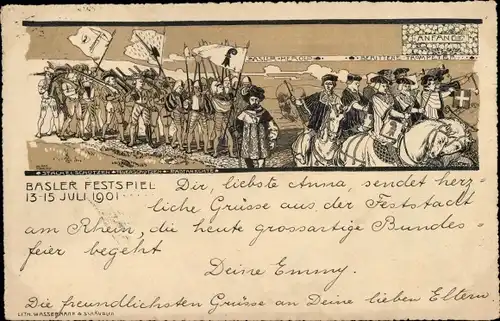 ANFANG
BASLER HEROLD BERITTENE TROMPETER
STACHELSCHÜTZEN
BASLER FESTSPIEL
13-15 JULI 1901
Dir, liebste Anna, sendet herz-
liche Grüsse aus der Feststadt
am Rhein, die heute grossartige Bundes-
feier begeht
Deine Emmy.
Die freundlichsten Grüsse an Deine lieben Eltern.
LITH. WASSERMANN & SCHÄUBLIN